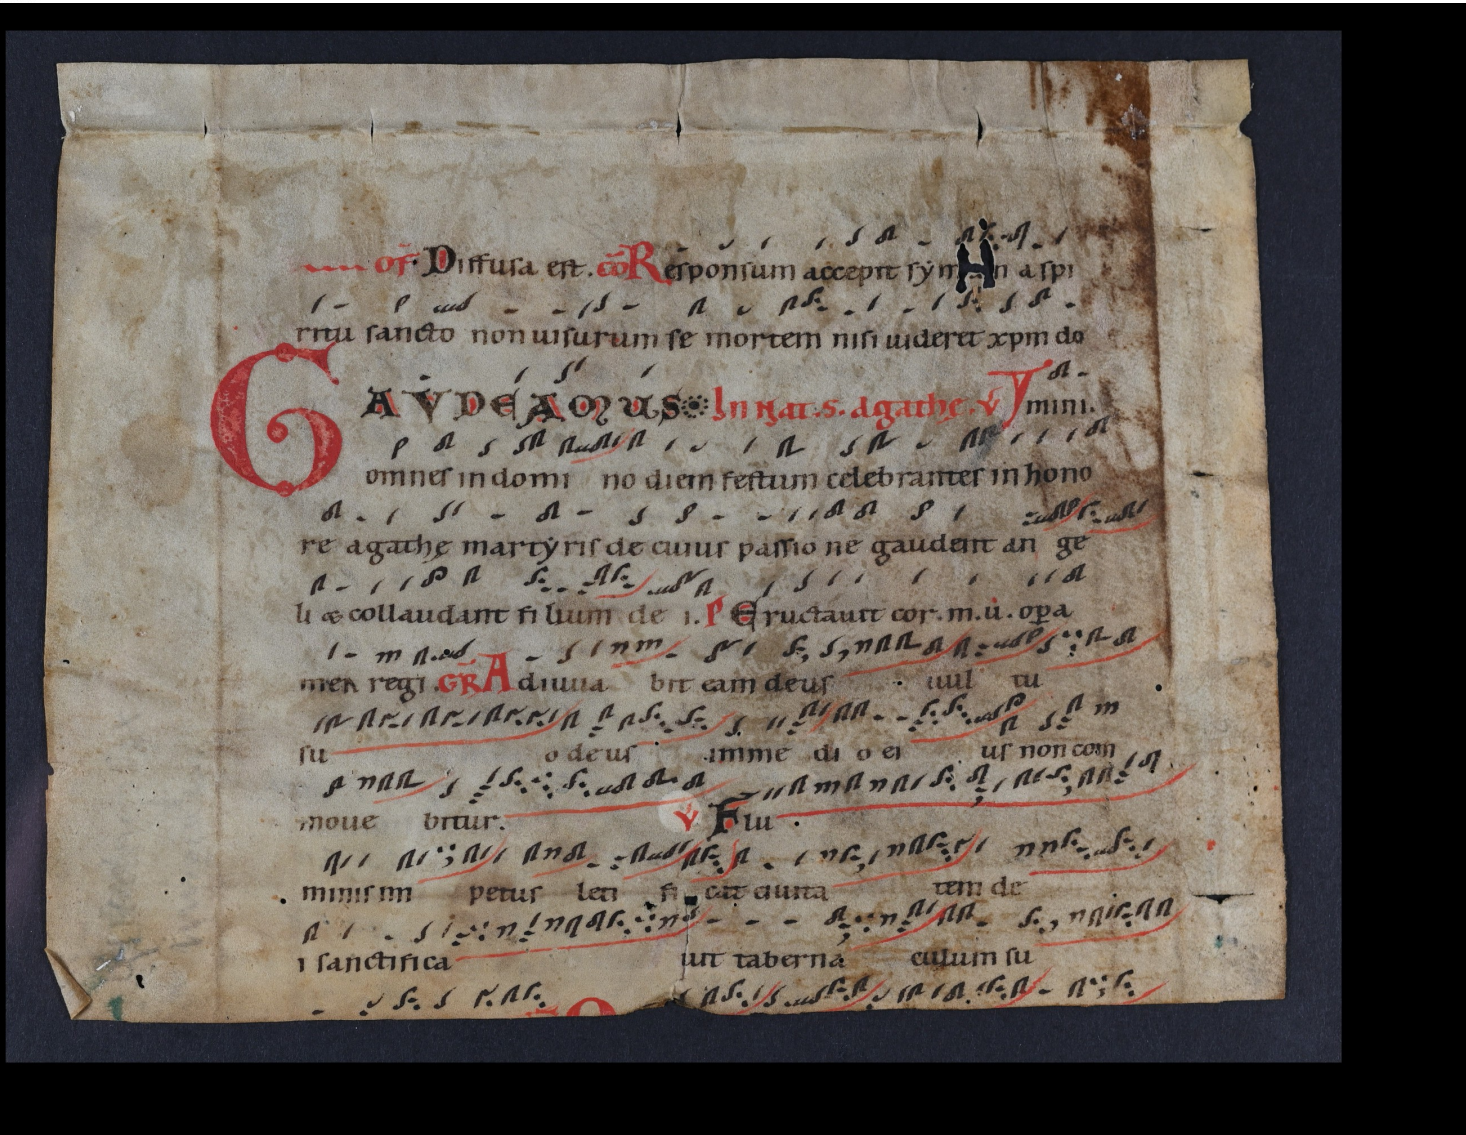 of. Diffusa est. cō Responsum accepit sẏm n a spi
ritu sancto non uisurum se mortem nisi uideret xpm do
GAVDEAMUS In nat. s. agathe. v̄ mini.
omnes in domi no diem festum celebrantes in hono
re agathe martẏris de cuius passio ne gaudent an ge
li & collaudant fi lium de i. P Eructauit cor. m. u. opa
mea regi. GR̄ Adiuua bit eam deus uul tu
su o deus imme di o ei us non com
moue bitur. v Flu
minis im petus leti fi cat ciuita tem de
i sanctifica uit taberna culum su